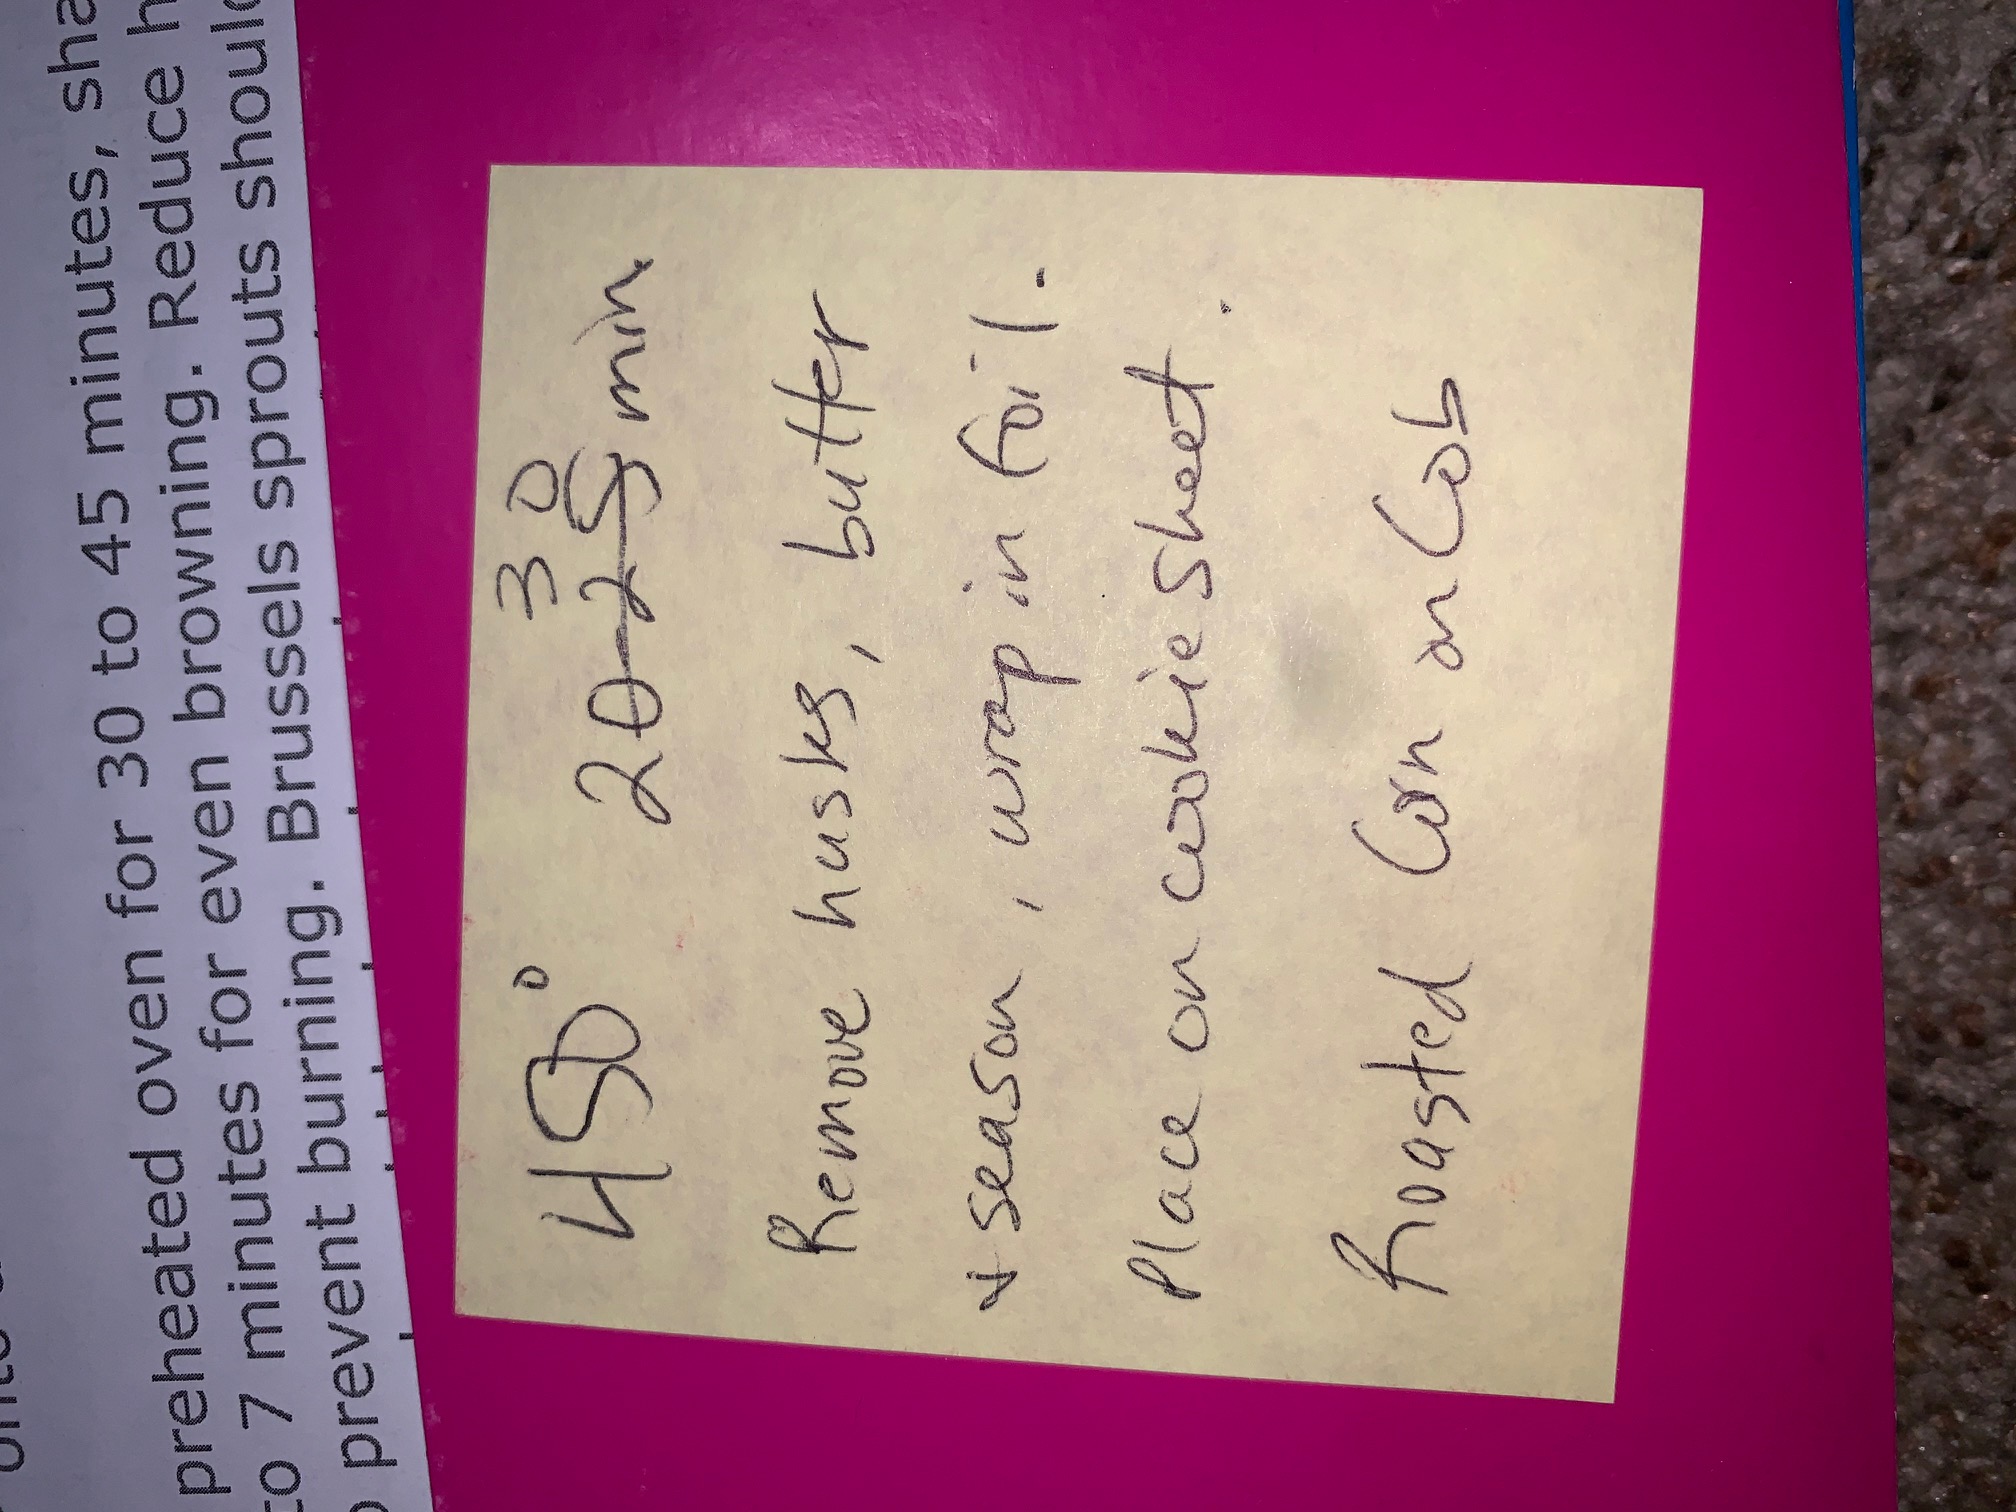 preheated oven for 30 to 45 minutes,
to 7 minutes for even browning. Reduce
prevent burning. Brussels sprouts
450° 30
20-25 min.
Remove husks, butter
& season, wrap in foil.
Place on cookie sheet.
Roasted Corn on Cob